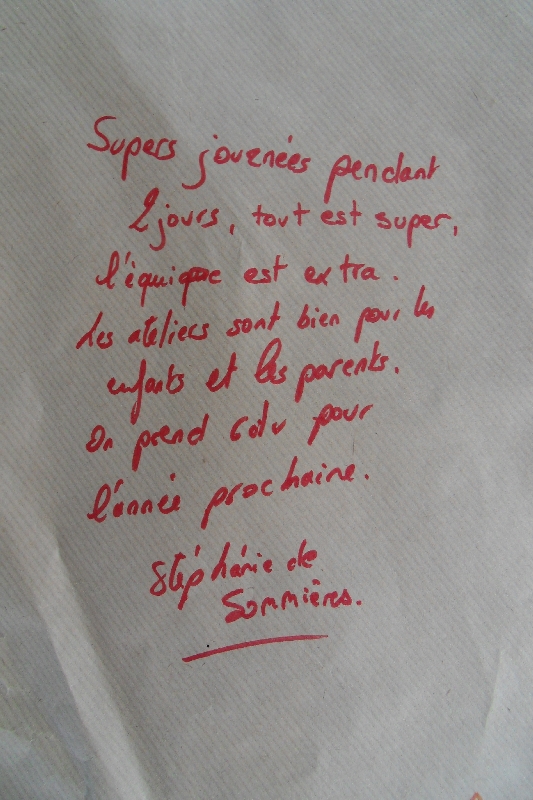 Supers journées pendant
2 jours, tout est super,
l'équipe est extra.
Les ateliers sont bien pour les
enfants et les parents.
On prend rdv pour
l'année prochaine.
Stéphanie de
Sommières.